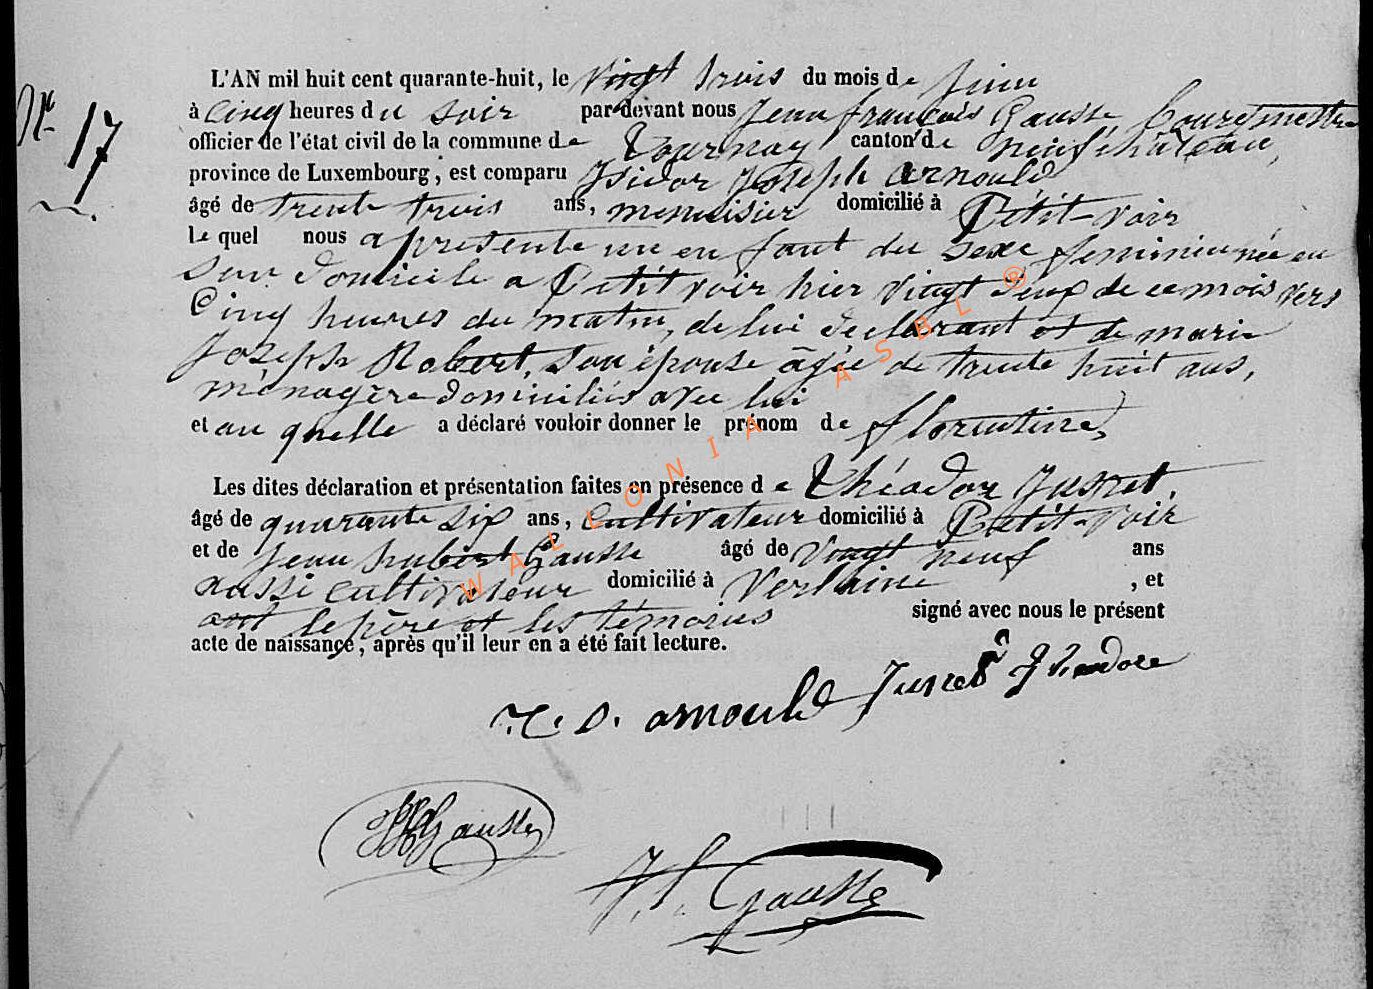 N° 17
L'AN mil huit cent quarante-huit, le vingt trois du mois de juin
à cinq heures du soir par-devant nous Jean françois Gausse Bourgmestre
officier de l'état civil de la commune de Tournay canton de neufchâteau,
province de Luxembourg, est comparu Isidor Joseph Arnould
âgé de trente trois ans, menuisier domicilié à Petit-voir
le quel nous a présenté un enfant du sexe feminin née en
son domicile a Petit voir hier vingt deux de ce mois vers
Cinq heures du matin, de lui declarant et de marie
Joseph Robert, son épouse âgée de trente huit ans,
ménagère domiciliés avec lui
et au quelle a déclaré vouloir donner le prénom de florentine
Les dites déclaration et présentation faites en présence de Théodor Jusnet,
âgé de quarante six ans, cultivateur domicilié à Petit-voir
et de Jean hubert Gausse âgé de vingt neuf ans
aussi cultivateur domicilié à Verlaine, et
ont le père et les témoins signé avec nous le présent
acte de naissance, après qu'il leur en a été fait lecture.
arnould
Gausse
J.f. Gausse
WALLONIA ASBL ®